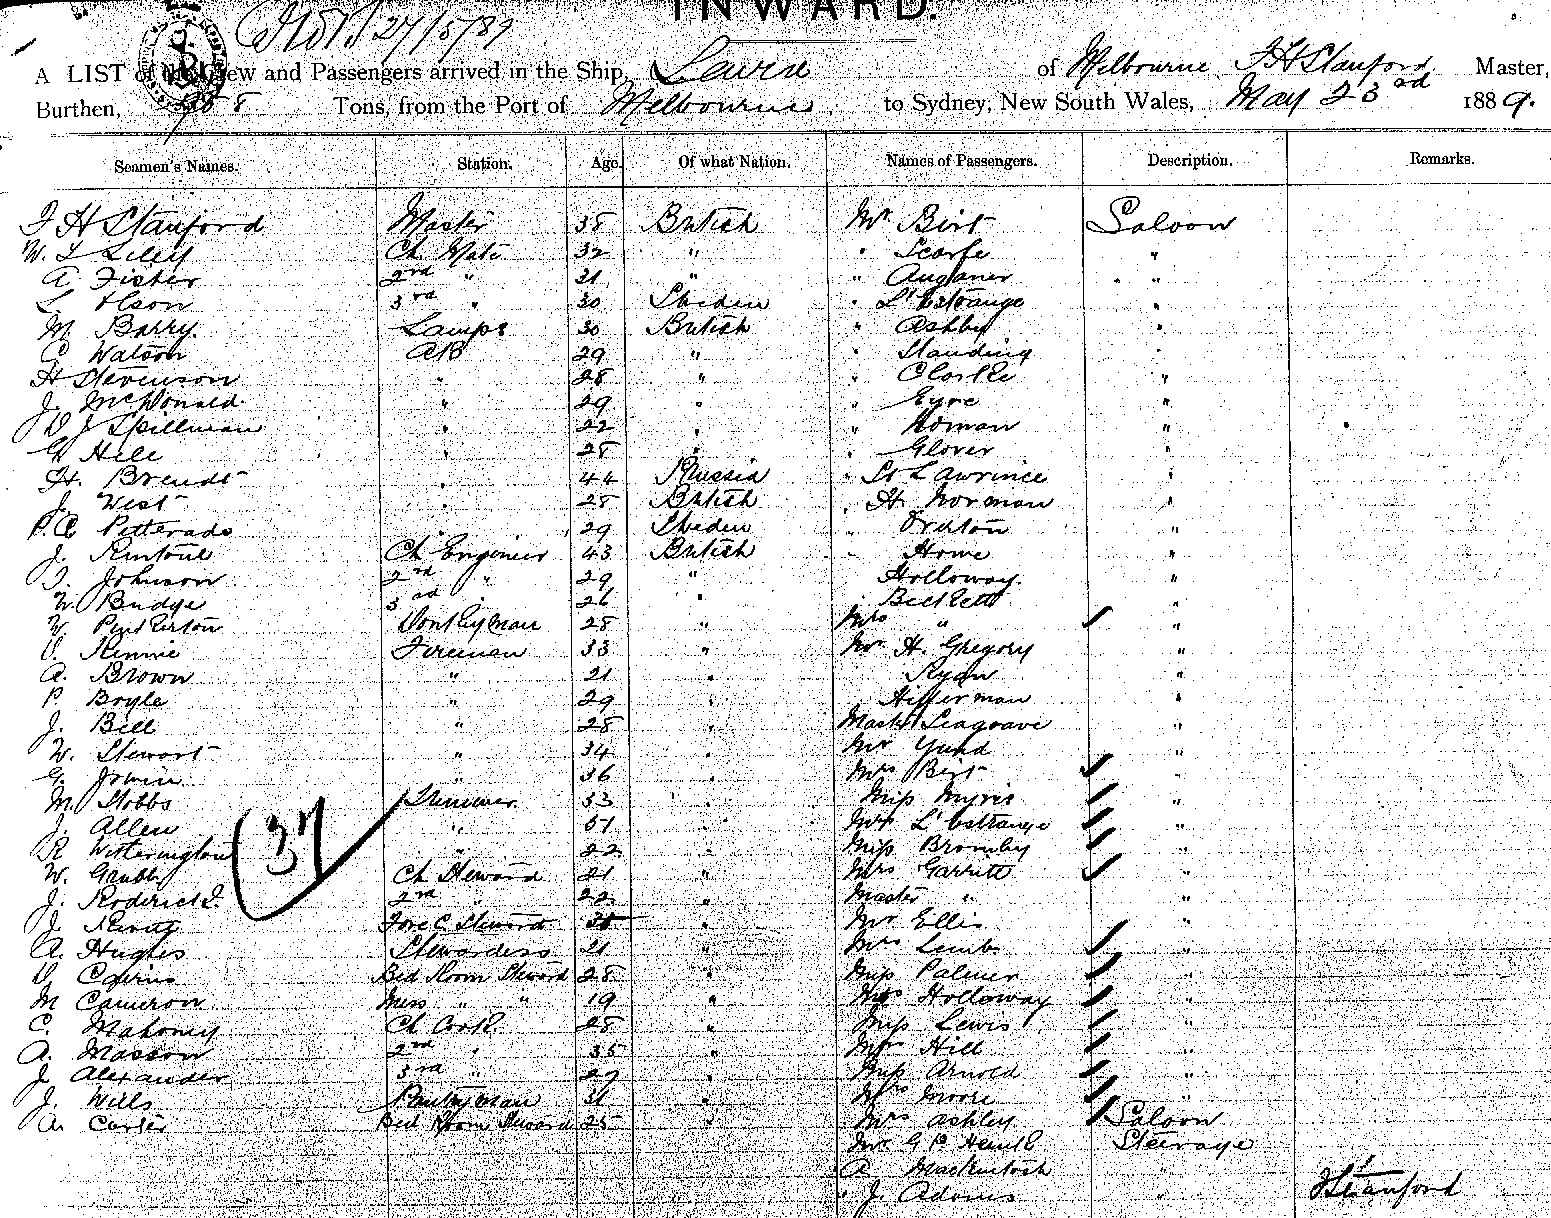 INWARD.
27/5/89
A LIST of the Crew and Passengers arrived in the Ship, of Melbourne F H Stanford Master,
Burthen, Tons, from the Port of Melbourne to Sydney, New South Wales, May 23rd 1889.
Seamen's Names. Station. Age. Of what Nation. Names of Passengers. Description. Remarks.
F H Stanford Master 38 British Mr Birt Saloon
W. L Liley Ch Mate 32 " " Scarfe "
A Fisher 2nd " 31 " " Auganer " "
L Olson 3rd " 30 Sweden " L'Estrange "
M Barry. Lamps 30 British " Ashby "
C Watson AB 29 " " Standing "
H Stevenson " 28 " " Clarke "
J. McDonald " 29 " " Eyre "
D J Spillman " 22 " " Homan "
G Hill " 28 " " Glover "
H. Brendt " 44 Russia " St Lawrince "
J. West " 28 British " H Norman "
P. C Petterado " 29 Sweden " Orchton "
J. Rintoul Ch Engineer 43 British " Howe "
T. Johnson 2nd " 29 " Holloway. "
W. Budge 3rd 26 " Beckett "
W Pinkerton Donkeyman 28 " Mrs " "
D. Rennie Fireman 33 " Mr H. Gregory "
A. Brown " 21 " Ryan "
P. Boyle " 29 " Hifferman "
J. Bell " 28 " Mastr Seagrave "
W. Stewart " 34 " Mr Yund "
G. Irwin " 36 " Mrs Birt "
M Hobbs Trimmer 33 " Miss Myris "
J. Allen " 51 " Mrs L'Estrange "
R Witherington " 22 " Miss Bromby "
(37
W. Grubb Ch Steward 21 " Mrs Garritt "
J. Roderick 2nd " 22 " Master " "
J. Fore C Steward " Mr Ellis "
A. Hughes Stewardess 21 " Mrs Lamb "
D Bed Room Steward 28 " Miss Palmer "
M Cameron Mess " " 19 " Mrs Holloway "
C. Mahoney Ch Cook 28 " Miss Lewis "
A. Masson 2nd " 35 " Mrs Hill "
J. Alexander 3rd " 27 " Miss Arnold "
J. Wills Pantryman 31 " Mrs Moore "
A. Carter Bed Room Steward 25 " Mrs Ashley Saloon
Mr G P Steerage
A Mackintosh "
" J. Adams "
F H Stanford